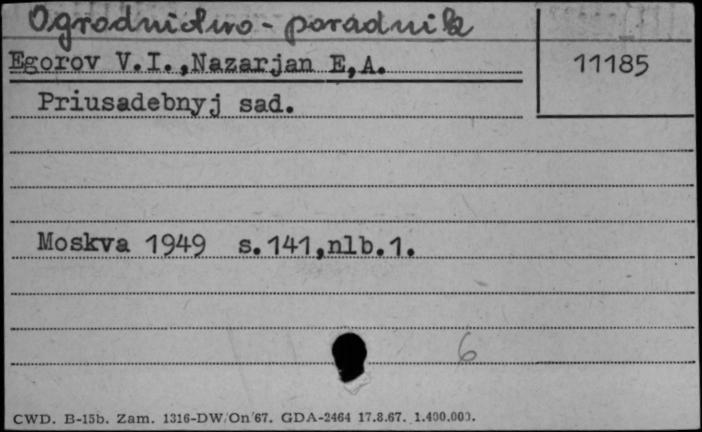 Ogrodnictwo - poradnik
Egorov V.I.,Nazarjan E,A.
11185
Priusadebnyj sad.
Moskva 1949 s.141,nlb.1.
6
CWD. B-15b. Zam. 1316-DW/On/67. GDA-2464 17.8.67. 1.400.000.